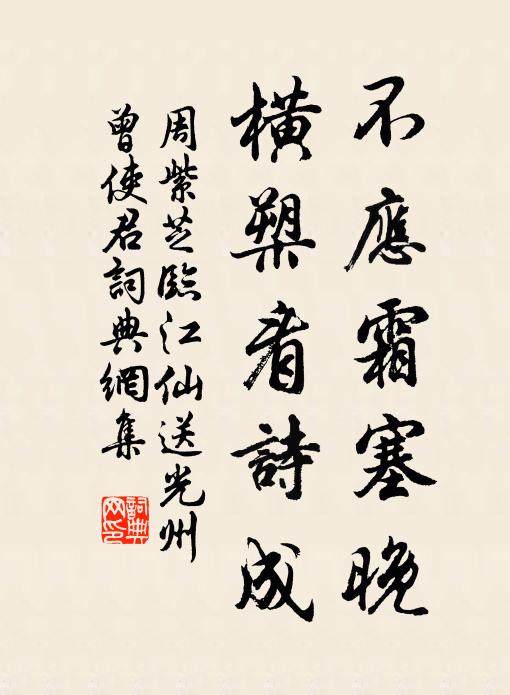 不應霜塞晚
橫槊看詩成
周紫芝臨江仙送光州
曾使君詞典網集
詞典
网印